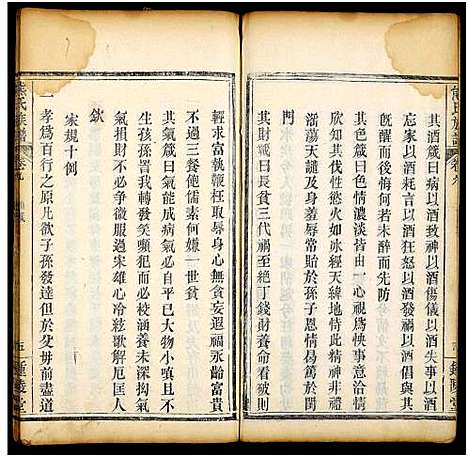 熊氏族譜
卷九
其酒箴曰病以酒致神以酒傷儀以酒失事以酒
忘家以酒耗言以酒狂怒以酒發禍以酒
既醒而後悔何若未醉而先防
其色箴曰色情濃淡皆由一心視為怏事意適情
欣人慾火熾如氷經天緯地情此精神非易易
漸蕩天理及身羞辱常貽於孫子恩情易篤於男
門
其財箴曰長貧三代禍至絕丁錢財養命看破則
輕求富執鞭枉取辱身心無貧妄遐福永齡富貴
不過三餐飽儒素何嫌一世貧
其氣箴曰氣能成病氣必自平已大物小嗔真不
生孫晋我少轉發笑嗔犯而必校涵養未深拘氣
氣損財不少爭微服過宋雄心冷絃歌解厄匡人
欽
家規十例
一孝為百行之原凡欲子孫發達但於父母前盡道
熊氏族譜
卷九
五
鍾陵堂